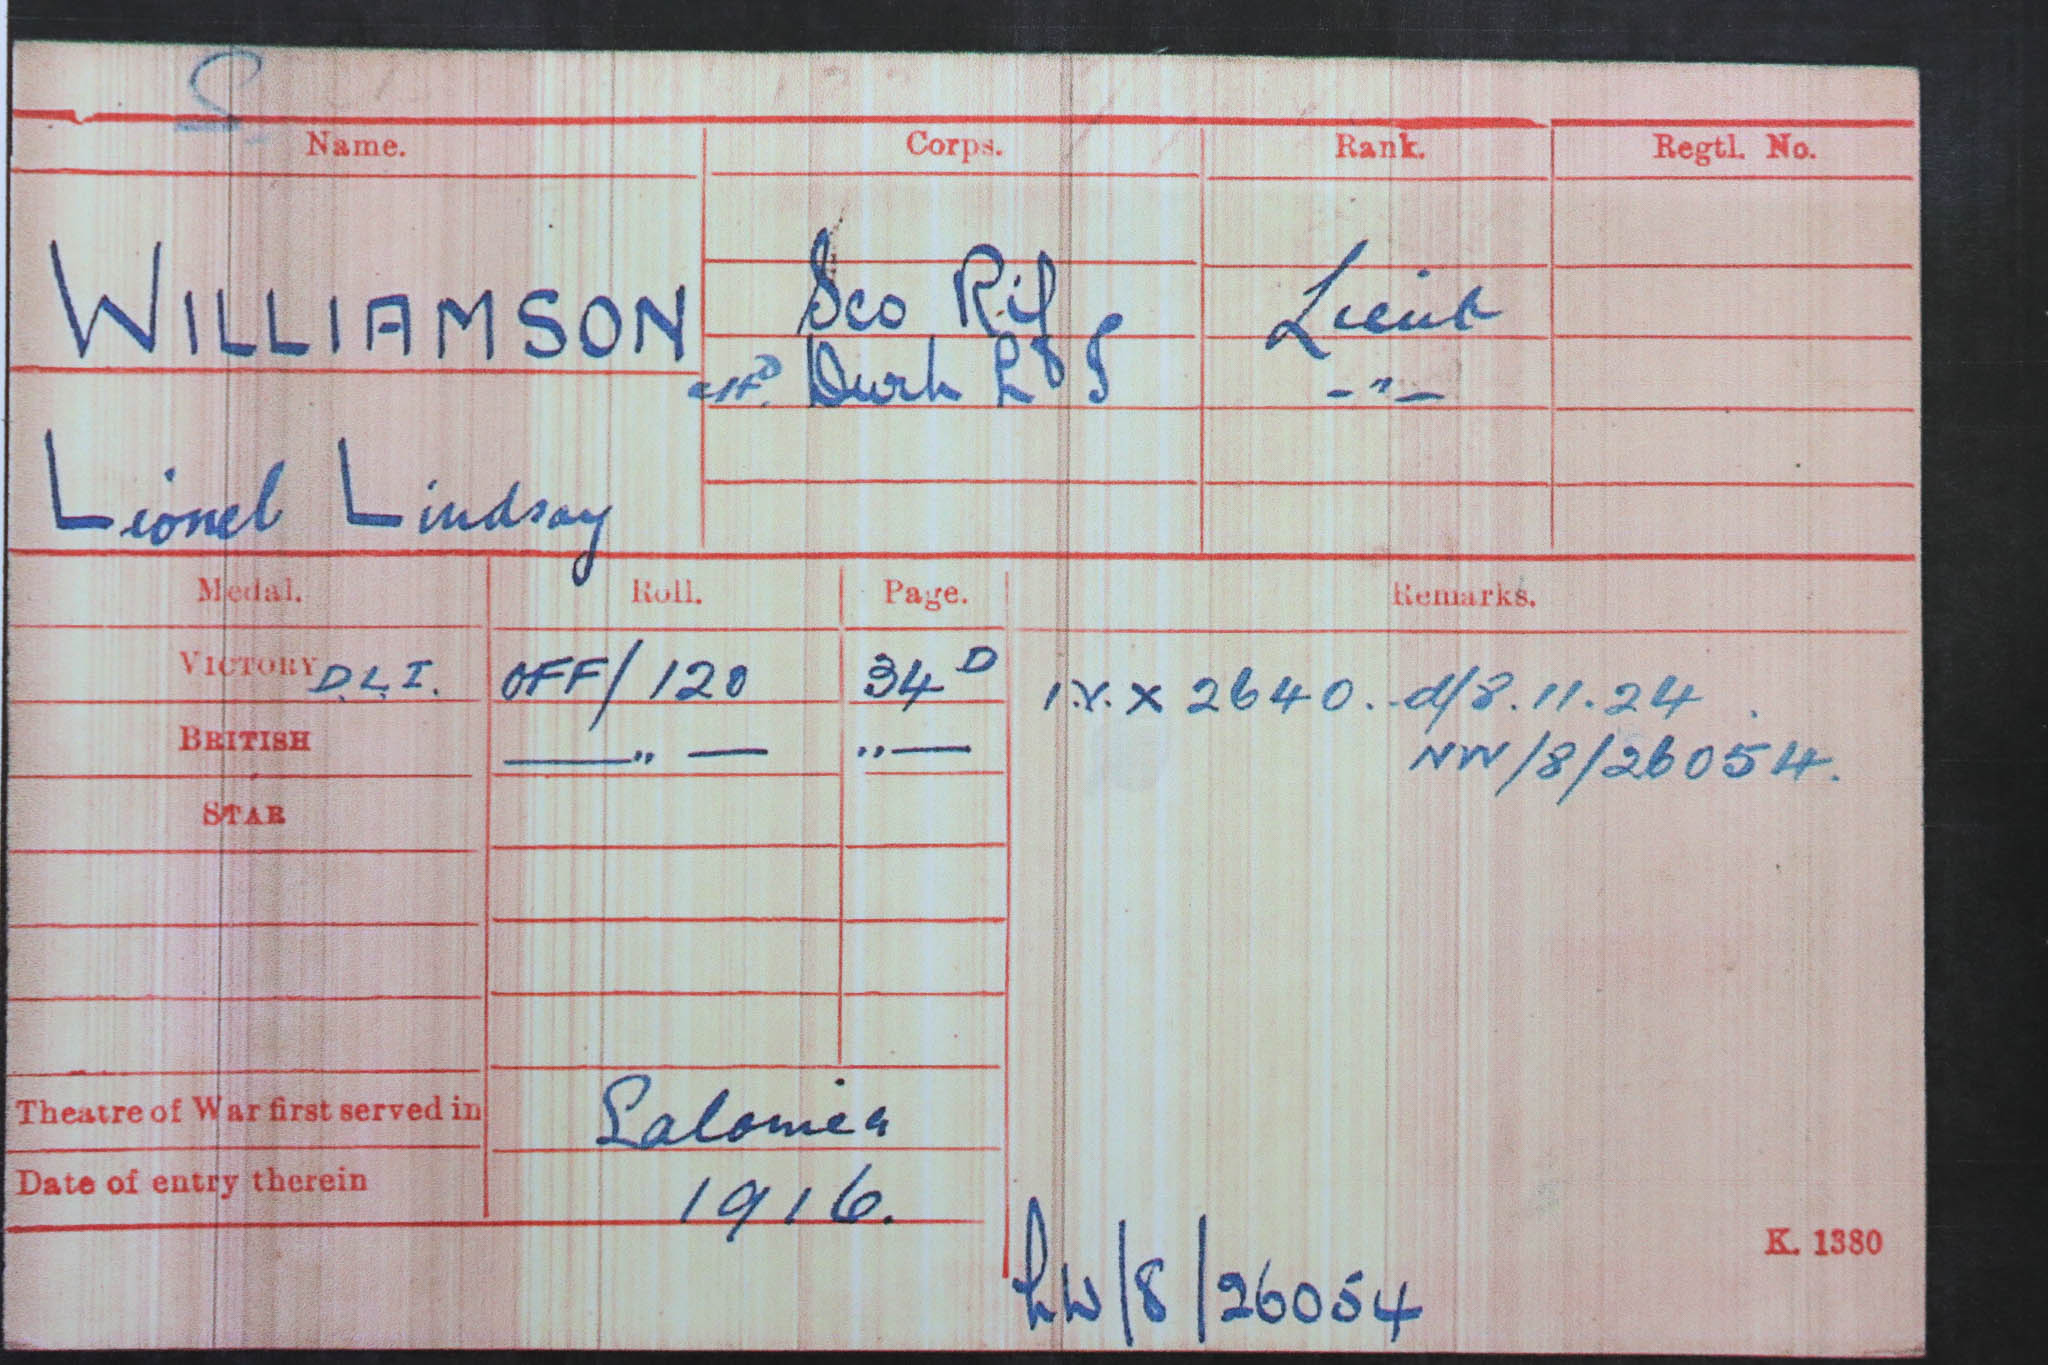 S
Name. Corps. Rank. Regtl. No.
WILLIAMSON Sco Rif Lieut
attd Durh L I -"-
Lionel Lindsay
Medal. Roll. Page. Remarks.
VICTORY D.L.I. OFF/120 34D I.V. X 2640. d/8.11.24.
BRITISH —"— "— NW/8/26054.
STAR
Theatre of War first served in Salonica
Date of entry therein 1916.
K. 1380
NW/8/26054